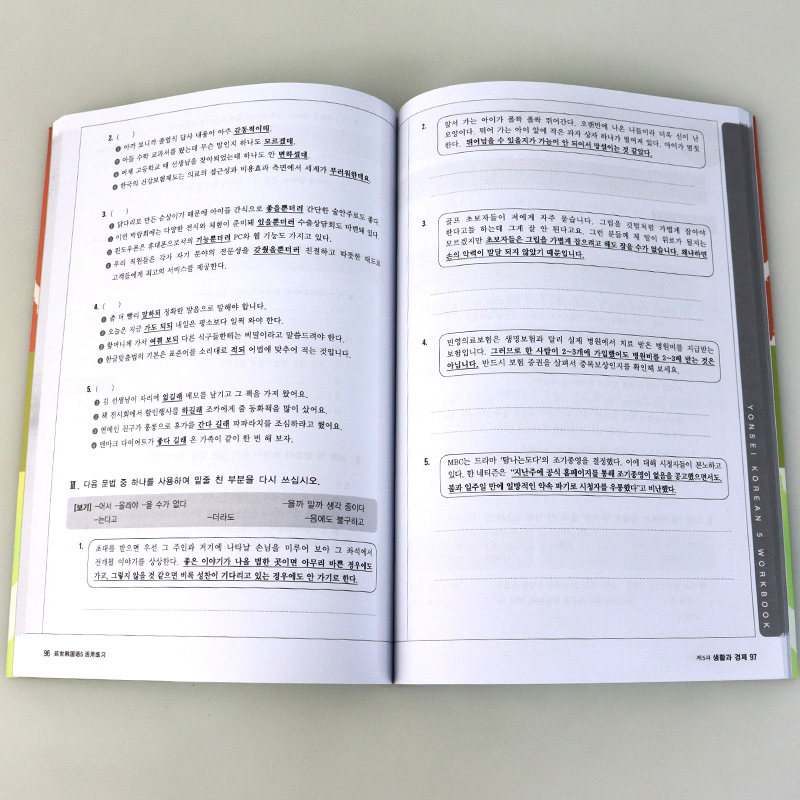 2. (    )
❶ 아까 보니까 졸업식 답사 내용이 아주 감동적이데.
❷ 아들 수학 교과서를 봤는데 무슨 말인지 하나도 모르겠데.
❸ 어제 고등학교 때 선생님을 찾아뵈었는데 하나도 안 변하셨데.
❹ 한국의 건강보험제도는 의료의 접근성과 비용효과 측면에서 세계가 부러워한데요.
3. (    )
❶ 닭다리로 만든 순살이기 때문에 아이들 간식으로 좋을뿐더러 간단한 술안주로도 좋다.
❷ 이번 박람회에는 다양한 전시와 체험이 준비돼 있을뿐더러 수출상담회도 마련돼 있다.
❸ 윈도우폰은 휴대폰으로서의 기능뿐더러 PC와 웹 기능도 가지고 있다.
❹ 우리 직원들은 각자 자기 분야의 전문성을 갖췄을뿐더러 친절하고 따뜻한 태도로
고객들에게 최고의 서비스를 제공한다.
4. (    )
❶ 좀 더 빨리 말하되 정확한 발음으로 말해야 합니다.
❷ 오늘은 지금 가도 되되 내일은 평소보다 일찍 와야 한다.
❸ 할머니께 가서 여쭤 보되 다른 식구들한테는 비밀이라고 말씀드려야 한다.
❹ 한글맞춤법의 기본은 표준어를 소리대로 적되 어법에 맞추어 적는 것입니다.
5. (    )
❶ 김 선생님이 자리에 없길래 메모를 남기고 그 책을 가져 왔어요.
❷ 책 전시회에서 할인행사를 하길래 조카에게 줄 동화책을 많이 샀어요.
❸ 연예인 친구가 홍콩으로 휴가를 간다 길래 파파라치를 조심하라고 했어요.
❹ 덴마크 다이어트가 좋다 길래 온 가족이 같이 한 번 해 보자.
Ⅲ. 다음 문법 중 하나를 사용하여 밑줄 친 부분을 다시 쓰십시오.
[보기] -어서 -을래야 -을 수가 없다 -을까 말까 생각 중이다
-는다고 -더라도 -음에도 불구하고
1. 초대를 받으면 우선 그 주인과 거기에 나타날 손님을 미루어 보아 그 좌석에서
전개될 이야기를 상상한다. 좋은 이야기가 나올 법한 곳이면 아무리 바쁜 경우에도
가고, 그렇지 않을 것 같으면 비록 성찬이 기다리고 있는 경우에도 안 가기로 한다.
96 延世韩国语5 活用练习
2. 앞서 가는 아이가 폴짝 폴짝 뛰어간다. 오랜만에 나온 나들이라 더욱 신이 난
모양이다. 뛰어 가는 아이 앞에 작은 과자 상자 하나가 떨어져 있다. 아이가 멈칫
한다. 뛰어넘을 수 있을지가 가늠이 안 되어서 망설이는 것 같았다.
3. 골프 초보자들이 저에게 자주 묻습니다. 그립을 깃털처럼 가볍게 잡아야
한다고들 하는데 그게 잘 안 된다고요. 그런 분들께 제 말이 위로가 될지는
모르겠지만 초보자들은 그립을 가볍게 잡으려고 해도 잡을 수가 없습니다. 왜냐하면
손의 악력이 발달 되지 않았기 때문입니다.
4. 민영의료보험은 생명보험과 달리 실제 병원에서 치료 받은 병원비를 지급받는
보험입니다. 그러므로 한 사람이 2~3개에 가입했어도 병원비를 2~3배 받는 것은
아닙니다. 반드시 보험 증권을 살펴서 중복보상인지를 확인해 보세요.
5. MBC는 드라마 '탐나는도다'의 조기종영을 결정했다. 이에 대해 시청자들이 분노하고
있다. 한 네티즌은 "지난주에 공식 홈페이지를 통해 조기종영이 없음을 공고했으면서도,
불과 일주일 만에 일방적인 약속 파기로 시청자를 우롱했다"고 비난했다.
YONSEI KOREAN 5 WORKBOOK
제5과 생활과 경제 97